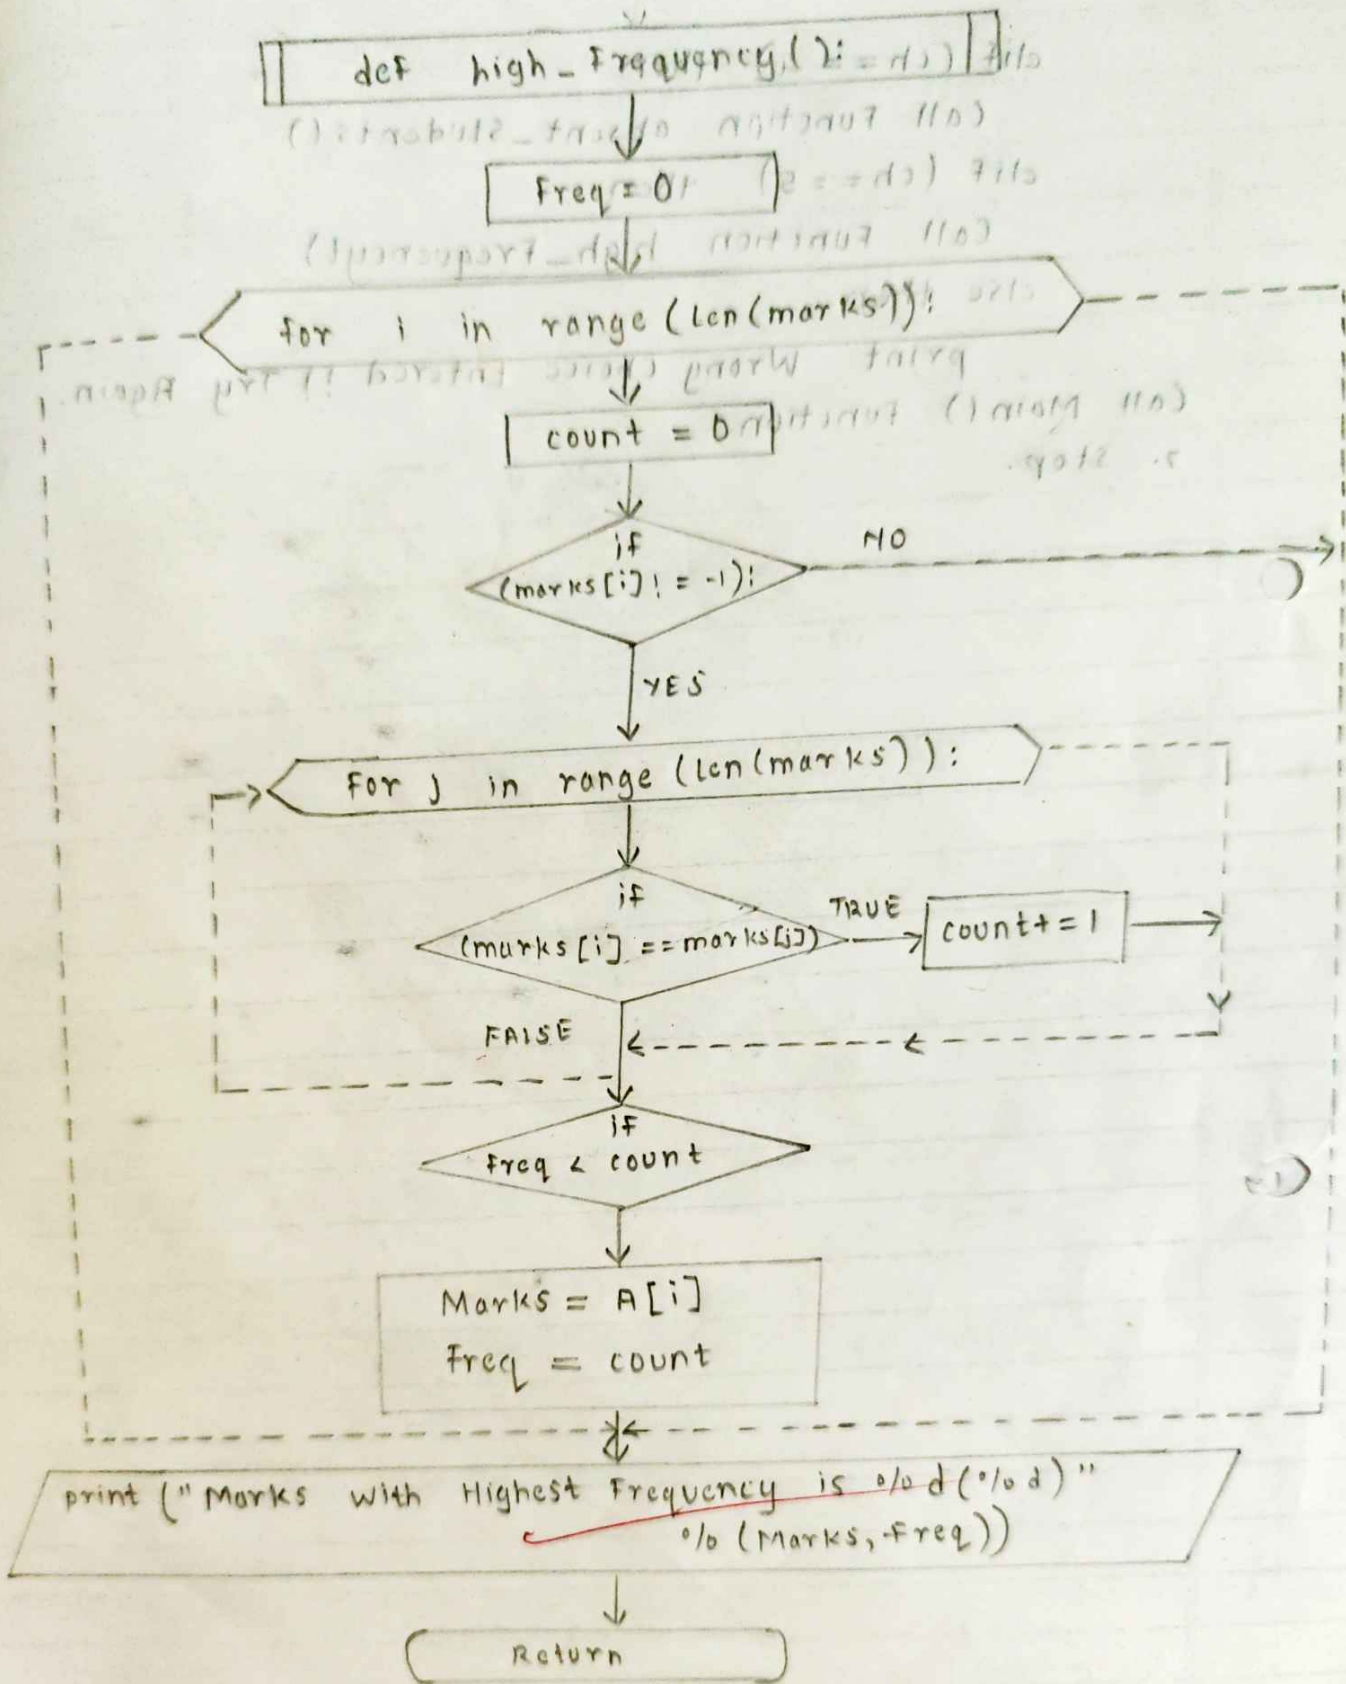 def high_Frequency():
Freq = 0
for i in range (len(marks)):
count = 0
if
(marks[i] != -1):
NO
YES
For j in range (len(marks)):
if
(marks[i] == marks[j])
TRUE
count+=1
FALSE
if
Freq < count
Marks = A[i]
Freq = count
print ("Marks with Highest Frequency is %d(%d)"
% (Marks, Freq))
Return